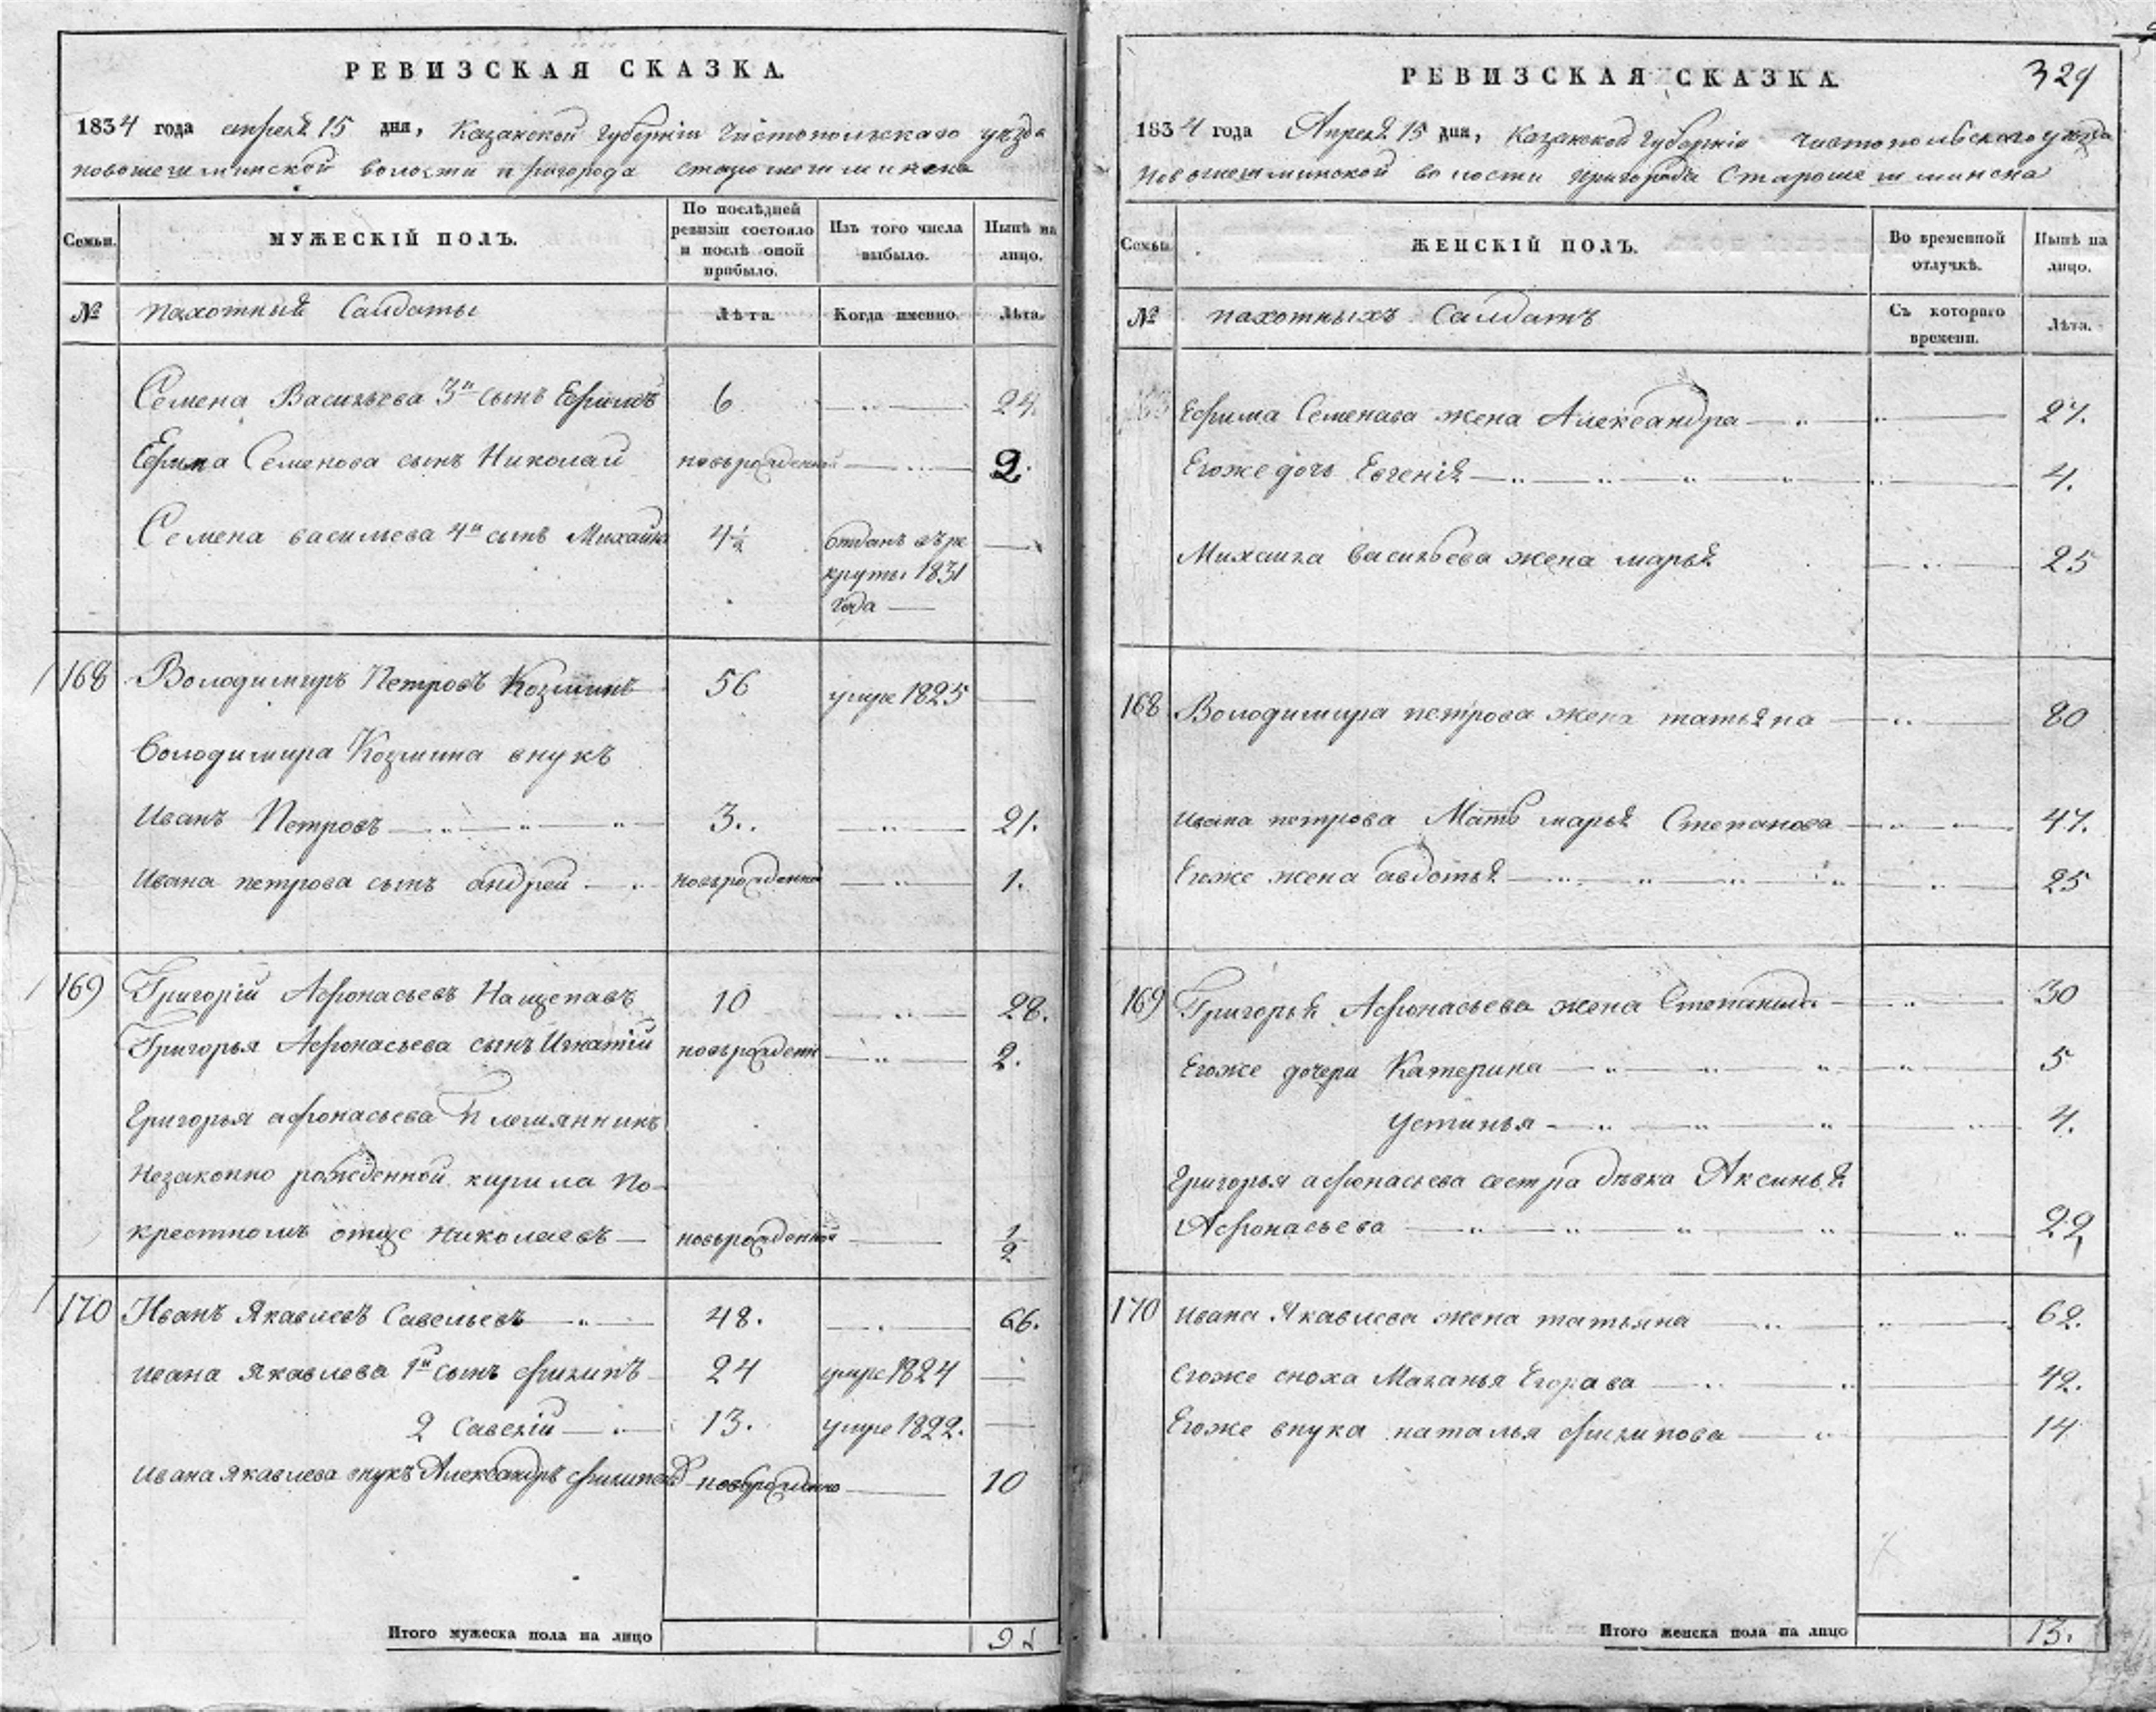 РЕВИЗСКАЯ СКАЗКА.
1834 года апреля 15 дня, Казанской губернiи Чистопольскаго уѣзда
новошешминской волости пригорода старошешминска
Семьи.
МУЖЕСКІЙ ПОЛЪ.
По послѣдней ревизіи состояло и послѣ оной прибыло.
Изъ того числа выбыло.
Нынѣ на лицо.
№
пахотныя Салдаты
Лѣта.
Когда именно.
Лѣта.
Семена Васильева 3й сынъ Ефимъ 6 24.
Ефима Семенова сынъ Николай новърожденный 2.
Семена василева 4й сынъ Михаила 4½ отданъ въ ре
круты 1831
года
168 Володимиръ Петровъ Козминъ 56 умре 1825
Володимира Козмина внукъ
Иванъ Петровъ 3. 21.
Ивана петрова сынъ андрей новърожденной 1.
169 Григорій Афонасьевъ Нащепавъ 10 28.
Григорья Афонасьева сынъ Игнатій новърожденн 2.
Григорья афонасьева племянникъ
Незаконно рожденной кирила по-
крестномъ отце николаевъ новърожденной ½
170 Иванъ Якавлевъ Савельевъ 48. 66.
ивана Якавлева 1й сынъ филипъ 24 умре 1824
2 Савелій 13. умре 1822.
ивана якавлева внукъ Александръ филиповъ новърожденно 10
Итого мужеска пола на лицо 9
329
РЕВИЗСКАЯ СКАЗКА.
1834 года Апреля 15 дня, Казанской губернiи чистопольскаго уѣзда
новошешминской волости пригорода Старошешминска
Семьи.
ЖЕНСКІЙ ПОЛЪ.
Во временной отлучкѣ.
Нынѣ на лицо.
№
пахотныхъ Салдатъ
Съ котораго времени.
Лѣта.
Ефима Семенава жена Александра 27.
Егоже дочь Евгенія 4.
Михаила Васильева жена марья 25
168 Володимира петрова жена татьяна 80
ивана петрова Мать марья Степанова 47.
Егоже жена авдотья 25
169 Григорья Афонасьева жена Степанида 30
Егоже дочери Катерина 5
Устинья 4.
Григорья афонасьева сестра дѣвка Аксинья
Афонасьева 22
170 ивана Якавлева жена татьяна 62.
Егоже сноха Маланья Егорава 42.
Егоже внука наталья филипова 14
Итого женска пола на лицо 13.